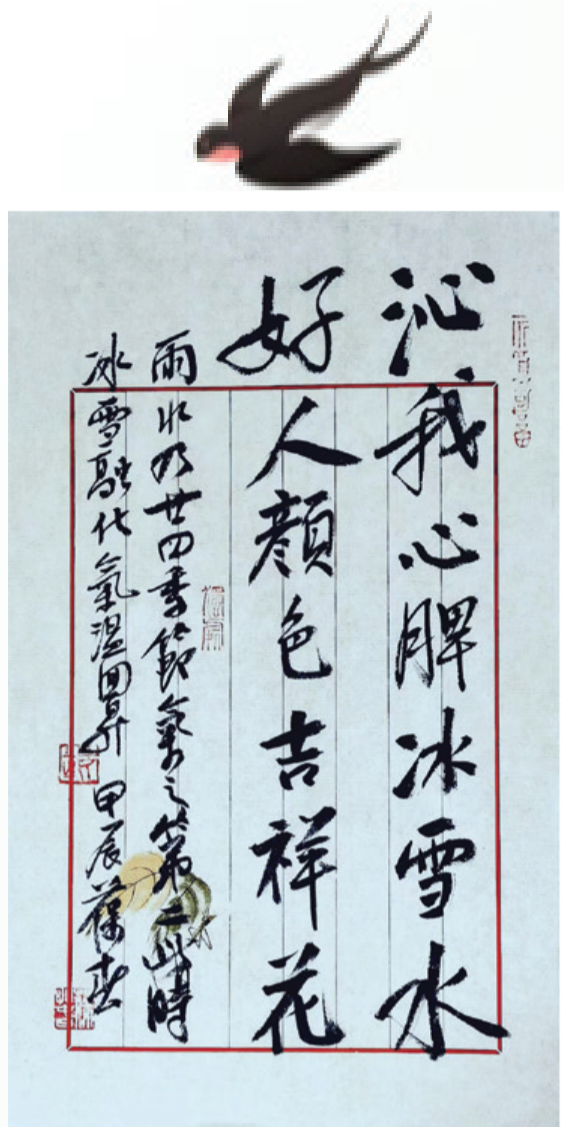 沁我心脾冰雪水
好人顏色吉祥花
雨水乃廿四季節氣之第二此時
冰雪融化氣溫回昇 甲辰葆春